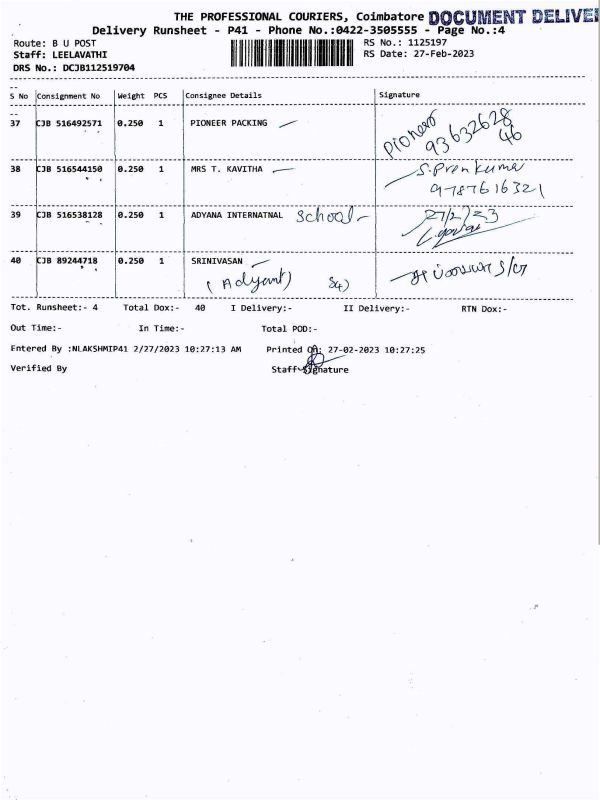 THE PROFESSIONAL COURIERS, Coimbatore DOCUMENT DELIVE
Delivery Runsheet - P41 - Phone No.:0422-3505555 - Page No.:4
Route: B U POST RS No.: 1125197
Staff: LEELAVATHI RS Date: 27-Feb-2023
DRS No.: DCJB112519704
S No Consignment No Weight PCS Consignee Details Signature
37 CJB 516492571 0.250 1 PIONEER PACKING Pioneer
93632628
46
38 CJB 516544150 0.250 1 MRS T. KAVITHA S.Premkumar
9787616321
39 CJB 516538128 0.250 1 ADYANA INTERNATNAL School 27/2/23
40 CJB 89244718 0.250 1 SRINIVASAN
(Adyant)
Tot. Runsheet:- 4 Total Dox:- 40 I Delivery:- II Delivery:- RTN Dox:-
Out Time:- In Time:- Total POD:-
Entered By :NLAKSHMIP41 2/27/2023 10:27:13 AM Printed On: 27-02-2023 10:27:25
Verified By Staff Signature